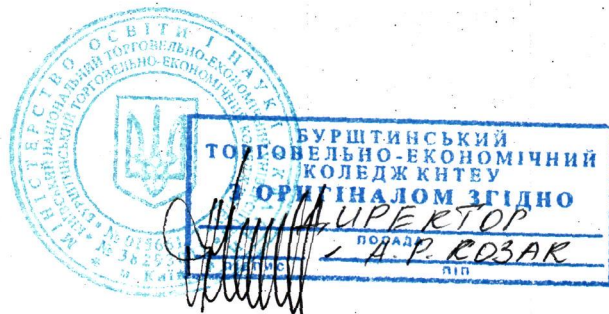 МІНІСТЕРСТВО ОСВІТИ І НАУКИ
КИЇВСЬКИЙ НАЦІОНАЛЬНИЙ ТОРГОВЕЛЬНО-ЕКОНОМІЧНИЙ
БУРШТИНСЬКИЙ ТОРГОВЕЛЬНО-ЕКОНОМІЧНИЙ
м. Київ
БУРШТИНСЬКИЙ
ТОРГОВЕЛЬНО-ЕКОНОМІЧНИЙ
КОЛЕДЖ КНТЕУ
З ОРИГІНАЛОМ ЗГІДНО
ДИРЕКТОР
ПОСАДА
А.Р. КОЗАК
ПІДПИС
ПІП